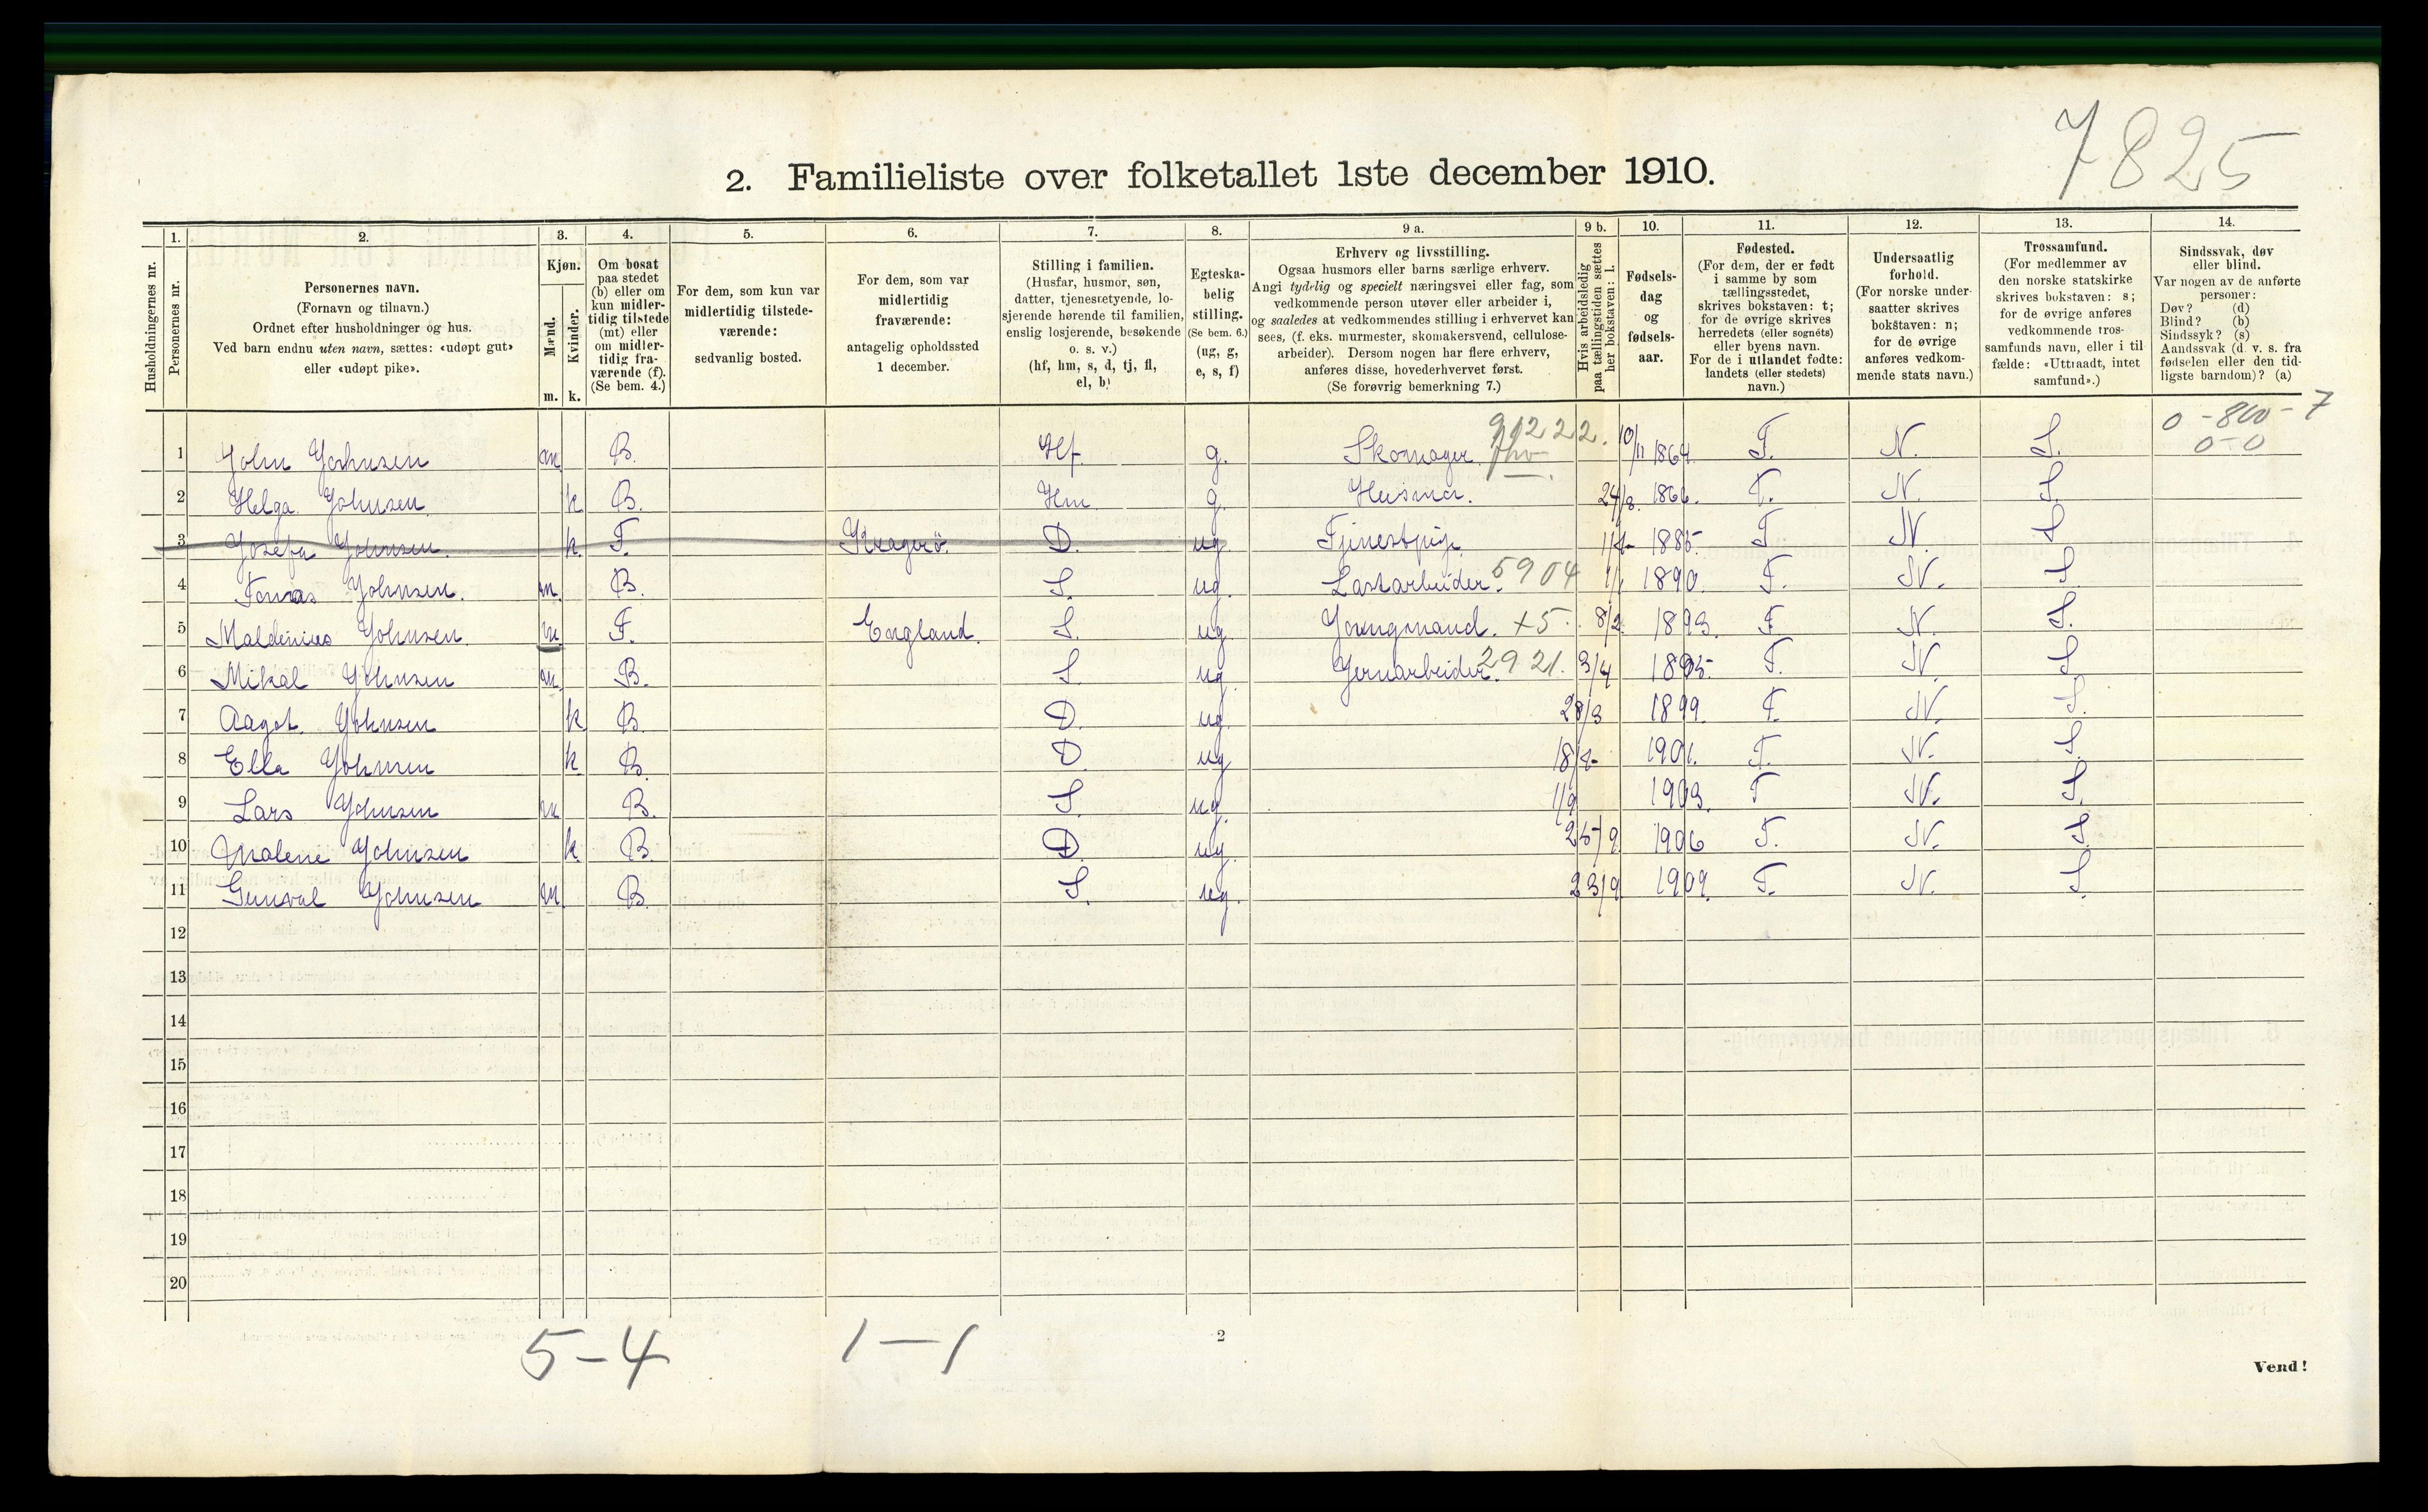 7825
2. Familieliste over folketallet 1ste december 1910.
1. 2. 3. 4. 5. 6. 7. 8. 9 a. 9 b. 10. 11. 12. 13. 14.
Husholdningernes nr.
Personernes nr.
Personernes navn.
(Fornavn og tilnavn.)
Ordnet efter husholdninger og hus.
Ved barn endnu uten navn, sættes: «udøpt gut»
eller «udøpt pike».
Kjøn.
Mænd.
Kvinder.
m. k.
Om bosat
paa stedet
(b) eller om
kun midler-
tidig tilstede
(mt) eller
om midler-
tidig fra-
værende (f).
(Se bem. 4.)
For dem, som kun var
midlertidig tilstede-
værende:
sedvanlig bosted.
For dem, som var
midlertidig
fraværende:
antagelig opholdssted
1 december.
Stilling i familien.
(Husfar, husmor, søn,
datter, tjenestetyende, lo-
sjerende hørende til familien,
enslig losjerende, besøkende
o. s. v.)
(hf, hm, s, d, tj, fl,
el, b)
Egteska-
belig
stilling.
(Se bem. 6.)
(ug, g,
e, s, f)
Erhverv og livsstilling.
Ogsaa husmors eller barns særlige erhverv.
Angi tydelig og specielt næringsvei eller fag, som
vedkommende person utøver eller arbeider i,
og saaledes at vedkommendes stilling i erhvervet kan
sees, (f. eks. murmester, skomakersvend, cellulose-
arbeider). Dersom nogen har flere erhverv,
anføres disse, hovederhvervet først.
(Se forøvrig bemerkning 7.)
Hvis arbeidsledig
paa tællingstiden sættes
her bokstaven: l.
Fødsels-
dag
og
fødsels-
aar.
Fødested.
(For dem, der er født
i samme by som
tællingsstedet,
skrives bokstaven: t;
for de øvrige skrives
herredets (eller sognets)
eller byens navn.
For de i utlandet fødte:
landets (eller stedets)
navn.)
Undersaatlig
forhold.
(For norske under-
saatter skrives
bokstaven: n;
for de øvrige
anføres vedkom-
mende stats navn.)
Trossamfund.
(For medlemmer av
den norske statskirke
skrives bokstaven: s;
for de øvrige anføres
vedkommende tros-
samfunds navn, eller i til
fælde: «Uttraadt, intet
samfund».)
Sindssvak, døv
eller blind.
Var nogen av de anførte
personer:
Døv? (d)
Blind? (b)
Sindssyk? (s)
Aandssvak (d. v. s. fra
fødselen eller den tid-
ligste barndom)? (a)
0 - 800 - 7
0 - 0
1 John Johnsen m B. Hf. g. Skomager 10/11 1864 T. N. S.
2 Helga Johnsen k B. Hm g. Husmor. 24/8. 1866. T. N. S.
3 Josefa Johnsen. k. F. Kragerø. D. ug Tjenestpige 1885. T N. S
4 Tomas Johnsen. m. B. S. ug. Lastarbeider. 5904 1/1 1890. T. N. S.
5 Maldinius Johnsen. m F. England. S. ug. Joungmand. +5. 8/2. 1893. T N. S.
6 Mikal Johnsen m. B. S ug. Jernarbeider. 2921. 3/4 1895. T. N. S
7 Aagot Johnsen k B. D. ug. 28/3 1899. T. N. S.
8 Ella Johnsen k B. D ug 1901. T. N. S.
9 Lars Johnsen m B. S. ug. 1/9 1903. T N. S.
10 Malene Johnsen k. B. D. ug. 25/9 1906 T. N. S.
11 Gunval Johnsen m B. S. ug. 23/9 1909. T. N. S.
12
13
14
15
16
17
18
19
20
5-4 1-1
2
Vend!